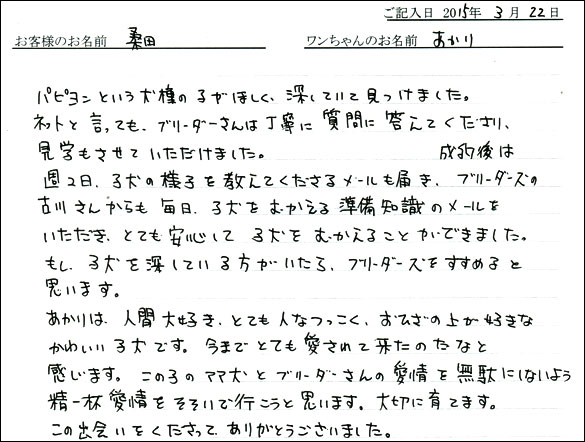 ご記入日 2015年 3月 22日
お客様のお名前 桑田 ワンちゃんのお名前 あかり
パピヨンという犬種の子がほしく、深していて見つけました。
ネットと言っても、ブリーダーさんは丁寧に質問に答えてくださり、
見学もさせていただけました。 成約後は
週2日、子犬の様子を教えてくださるメールも届き、ブリーダーズの
古川さんからも毎日、子犬をむかえる準備知識のメールを
いただき、とても安心して子犬をむかえることができました。
もし、子犬を深している方がいたら、ブリーダーズをすすめると
思います。
あかりは、人間大好き、とても人なつっこく、おひざの上が好きな
かわいい子犬です。今までとても愛されて来たのだなと
感じます。この子のママ犬とブリーダーさんの愛情を無駄にしないよう
精一杯愛情をそそいで行こうと思います。大切に育てます。
この出会いをくださって、ありがとうございました。